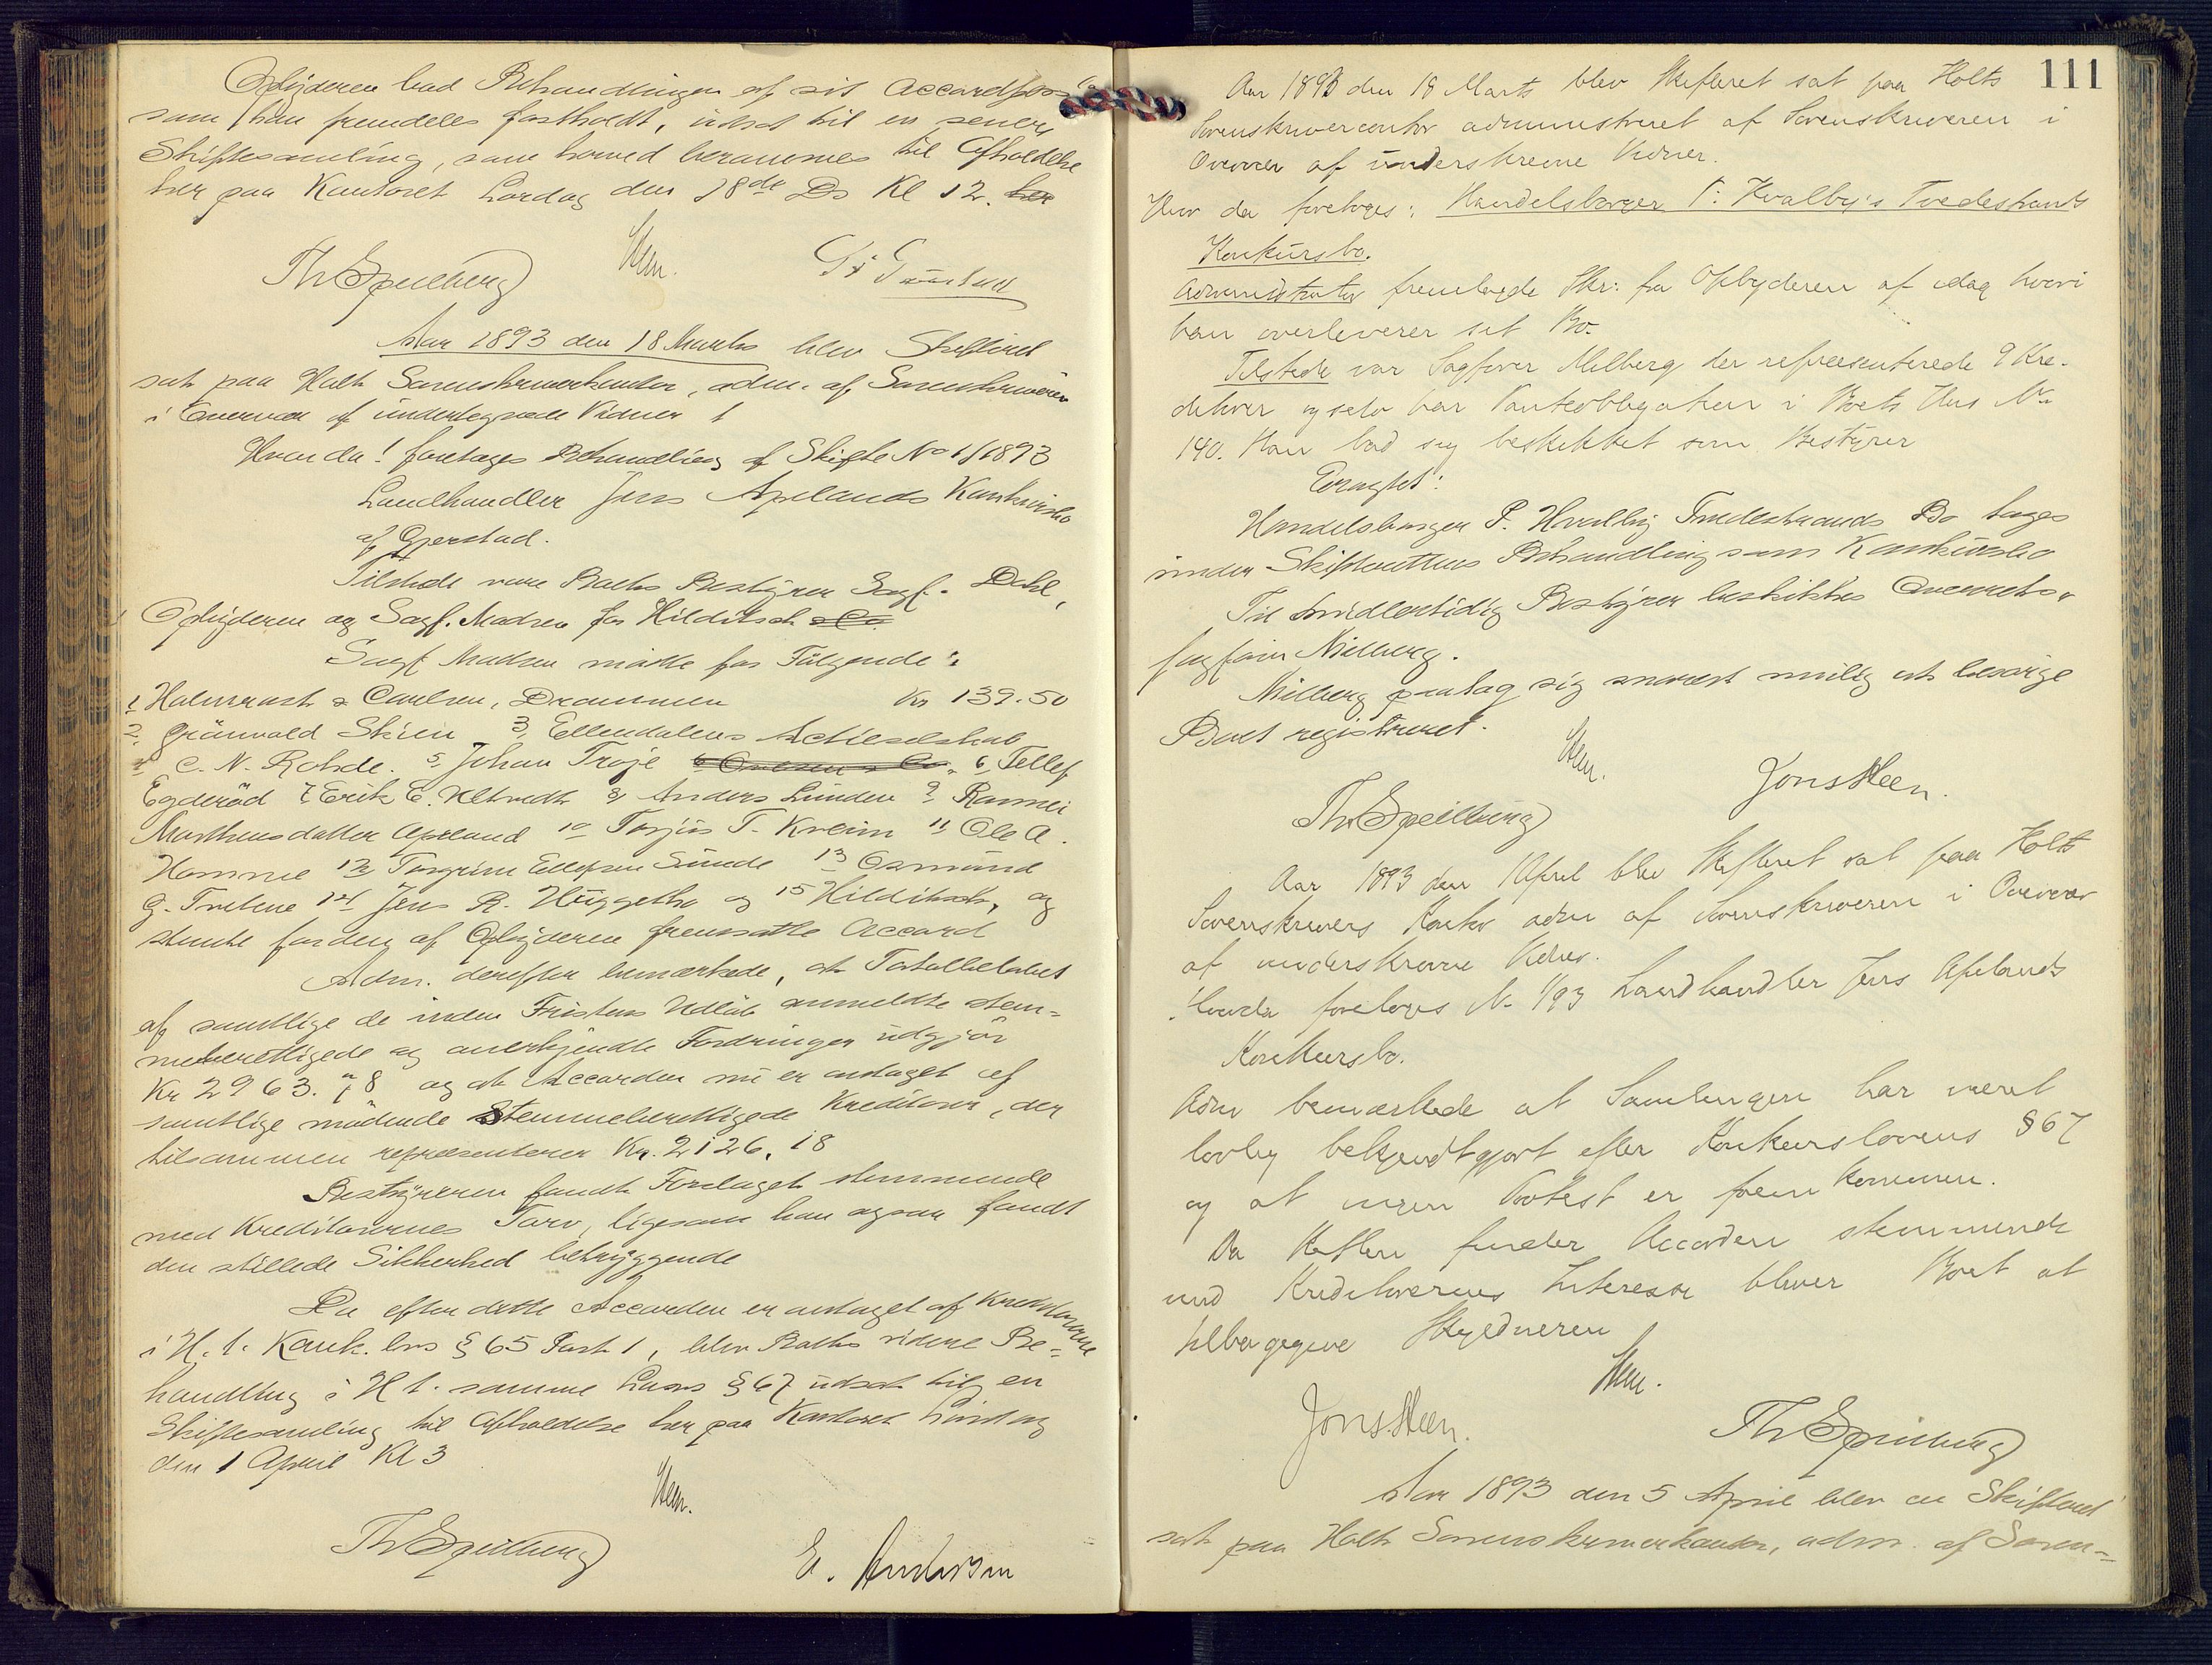 Opbyderen bad Behandlingen af sit Accardforslag
som han fremdeles fastholdt, udsat til en senere
Skiftesamling, som herved berammes til Afholdelse
her paa Kontoret Lørdag den 18de Ds Kl 12. her
Hen.
Th Speilberg
Aar 1893 den 18 Marts blev Skifteret
sat paa Holt Sorenskriverkontor, adm. af Sorenskriveren
i Overvær af undertegnede Vidner
Hvorda! foretages Behandling af Skifte No 1/1893
Landhandler Jens Apelands Konkursbo
af Gjerstad.
Tilstede vare Boets Bestyrer Sagf. Dahl,
Opbyderen og Sagf. Madsen for Hilditsch & Co.
Sagf Madsen mötte for Fölgende:
1 Halvorsrast & Carlsen, Drammen Kr 139.50
2. Grünvald Skien 3, Ellendalens Actieselskab
4 C. N. Rohde. 5. Johan Troje 6 Ovesen & Co. 6, Tellef
Egderöd 7 Erik E. Ultvedt 8, Anders Lunden 9 Ramei
Marthinsdatter Apeland 10 Torjus T. Kveim 11 Ole A.
Hommе 12 Torgrim Ellefsen Sunde 13 Osmund
G. Tveitene 14 Jens R. Huggetho og 15 Hilditsch, og
stemte for den af Opbyderen fremsatte Accord
Adm. derefter bemærkede, at Totalbelöbet
af samtlige de inden Fristens Udløb anmeldte stem-
meberettigede og anerkjendte Fordringer udgjör
Kr 2963.78 og at Accorden nu er antaget af
samtlige mödende Stemmeberettigede Kreditorer, der
tilsammen repræsenterer Kr. 2126,18
Bestyreren fandt Forslaget stemmende
med Kreditorernes Tarv, ligesom han ogsaa fandt
den stillede Sikkerhed betryggende
Da efter dette Accorden er antaget af Kreditorerne
i H. t. Konk. lovs § 65 Post 1, blev Boets videre Be-
handling i H t. samme Lovs § 67 udsat til en
Skiftesamling til Afholdelse her paa Kontoret Lördag
den 1 April Kl 3
Hen.
Th Speilberg
E. Andersen
111
Aar 1893 den 18 Marts blev Skifteret sat paa Holts
Sorenskrivercontor administreret af Sorenskriveren i
Overvær af underskrevne Vidner.
Hvor da foretoges: Handelsborger P. Kvalbys Tvedestrands
Konkursbo.
Administrator fremlagde Skr: fra Opbyderen af idag hvori
han overleverer sit Bo.
Tilstede var Sagfører Milberg der repræsenterede 9 Kre-
ditorer og selv har Panteobligation i Boets Hus No
140. Han bad sig beskikket som Bestyrer
Eragtet:
Handelsborger P. Hvalby Tvedestrands Bo tages
under Skifterettens Behandling som Konkursbo
Til Imidlertidig Bestyrer beskikkes Overrets-
sagfører Milberg.
Milberg paatog sig snarest mulig at besörge
Boet registreret.
Hen.
Th Speilberg
Jons Heen.
Aar 1893 den 1 April blev Skifteret sat paa Holts
Sorenskrivers Kontor adm af Sorenskriveren i Overvær
af underskrevne Vidner.
Hvorda foretoges No 1/93 Landhandler Jens Apelands
Konkursbo.
Adm bemærkede at Samlingen har været
lovlig bekjendtgjort efter Konkurslovens § 67
og at ingen Protest er fremkommen.
Da Retten finder Accorden stemmende
med Kreditorernes Interesse bliver Boet at
tilbagegive Skyldneren
Hen.
Jons Heen.
Th Speilberg
Aar 1893 den 5 April blev en Skifteret
sat paa Holt Sorenskriverkontor, adm. af Soren-